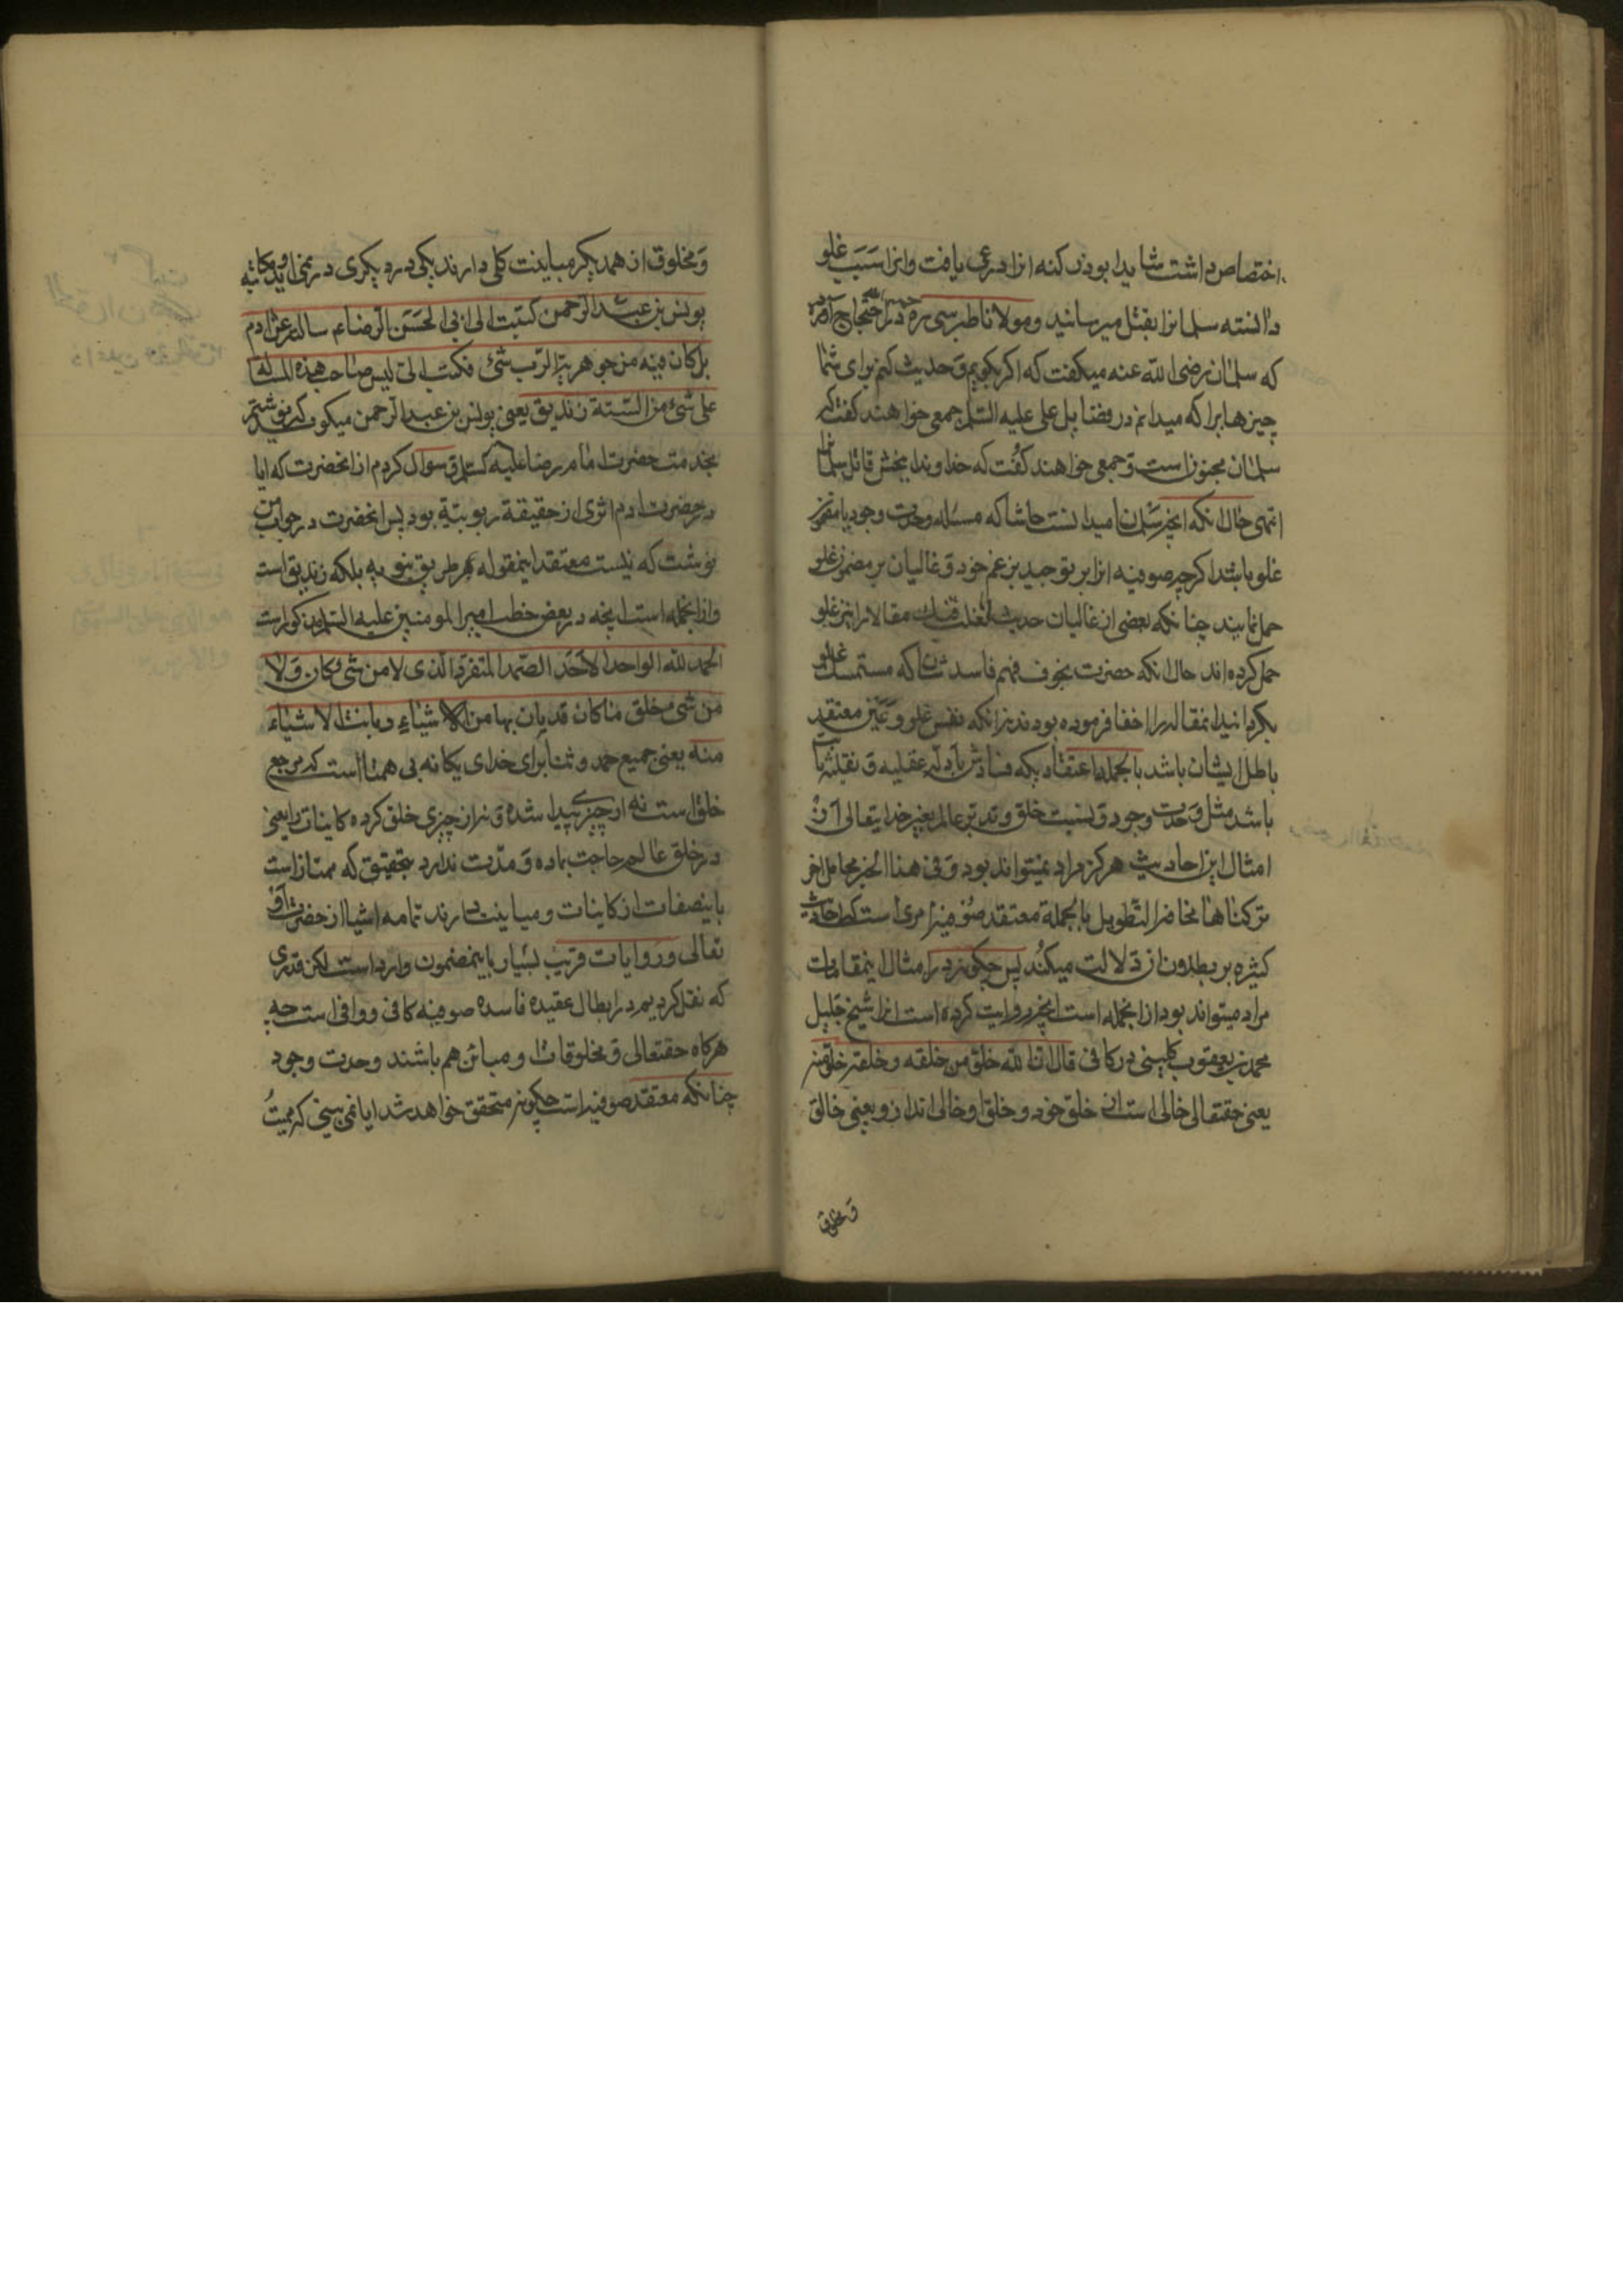 اختصاص داشت شاید ابوذر کنه انرا درعی یافت وانرا سبب غلو
دانسته سلمانرا بقتل میرسانید ومولانا طبرسی ره در احتجاج آورده
که سلمان رضی الله عنه میکفت که اکر بکویم و حدیث کنم برای شما
چیزهایرا که میدانم در فضایل علی علیه السلم جمعی خواهند کفت که
سلمان مجنون است و جمعی خواهند کفت که خداوندا ببخش قاتل سلمانرا
انتهی حال انکه انچه سلمان میدانست حاشا که مسئله وحدت وجود یا متضمن
غلو باشد اکرچه صوفیه انرا بر توحید بزعم خود و غالیان بر مضمون غلو
حمل نمایند چنانکه بعضی از غالیان حدیث لفعلت مقالا را نیز بر غلو
حمل کرده اند حال انکه حضرت بخوف فهم فاسد شان که مستمسک غلو
بکردانید اینمقاله را اخفا فرموده بودند نه انکه نفس غلو و عین معتقد
باطل ایشان باشد بالجمله اعتقادیکه فسادش بادله عقلیه و نقلیه ثابت
باشد مثل وحدت وجود و نسبت خلق و تدبیر عالم بغیر خدایتعالی از
امثال این احادیث هرکز مراد نمیتواند بود و فی هذا الخبر محامل اخر
ترکناها مخافة التطویل بالجملة معتقد صوفیه امری است که احادیث
کثیره بر بطلان ان دلالت میکند پس چکونه در امثال اینمقامات
مراد میتواند بود ازانجمله است انچه روایت کرده است انرا شیخ جلیل
محمد بن یعقوب کلینی در کافی قال ان الله خلق من خلقه و خلقه خلق منه
یعنی حقتعالی خالی است از خلق خود و خلق او خالی اند از و یعنی خالق
و مخلوق
و مخلوق از همدیکر مباینت کلی دارند یکی در دیکری در نمی اید و مکاتبه
یونس بن عبد الرحمن کتبت الی ابی الحسن الرضاء سالته عن ادم
هل کان فیه من جوهریة الرب شئ فکتب الی لیس صاحب هذه المسالة
علی شئ من السنة زندیق یعنی یونس بن عبد الرحمن میکوید که نوشتم
بخدمت حضرت امام رضا علیه السلم و سوال کردم از انحضرت که ایا
در حضرت ادم اثری از حقیقة ربوبیة بود پس انحضرت در جواب من
نوشت که نیست معتقد اینمقوله بر طریق نبویه بلکه زندیق است
وازانجمله است انچه در بعض خطب امیر المومنین علیه السلم مذکور است
الحمد لله الواحد الاحد الصمد المتفرد الذی لا من شی کان و لا
من شی خلق ما کان قد بان بها من الاشیاء و بانت الاشیاء
منه یعنی جمیع حمد و ثنا برای خدای یکانه بی همتا است که مرجع
خلق است نه از چیزی پیدا شده و نه از چیزی خلق کرده کاینات را یعنی
در خلق عالم حاجت بماده و مدت ندارد بتحقیق که ممتاز است
باینصفات از کاینات و مباینت دارند تمامه اشیا از حضرت او
تعالی و روایات قریب بسیار باینمضمون وارد است لکن قدری
که نقل کردیم در ابطال عقیده فاسده صوفیه کافی و وافی است چه
هرکاه حقتعالی و مخلوقات او مبائن هم باشند وحدت وجود
چنانکه معتقد صوفیه است چکونه متحقق خواهد شد ایا نمی بینی که ممیت